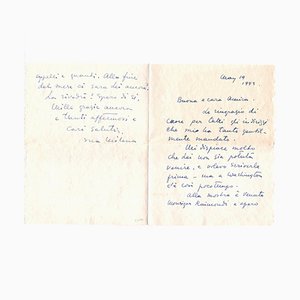 May 14
1953
Buona e cara Amica.
La ringrazio di
cuore per tutti gli indirizzi
che mi ha tanto gentil-
mente mandato.
Mi dispiace molto
che lei non sia potuta
venire, e volevo scriverle
prima - ma a Washington
c'è così poco tempo.
Alla mostra è venuto
Monsigor Raimondi e spero
e quanti. Alla fine
del mese ci sarà
La rivedrò! Spero di sì.
Mille grazie ancora
e tanti affettuosi e
cari saluti,
sua